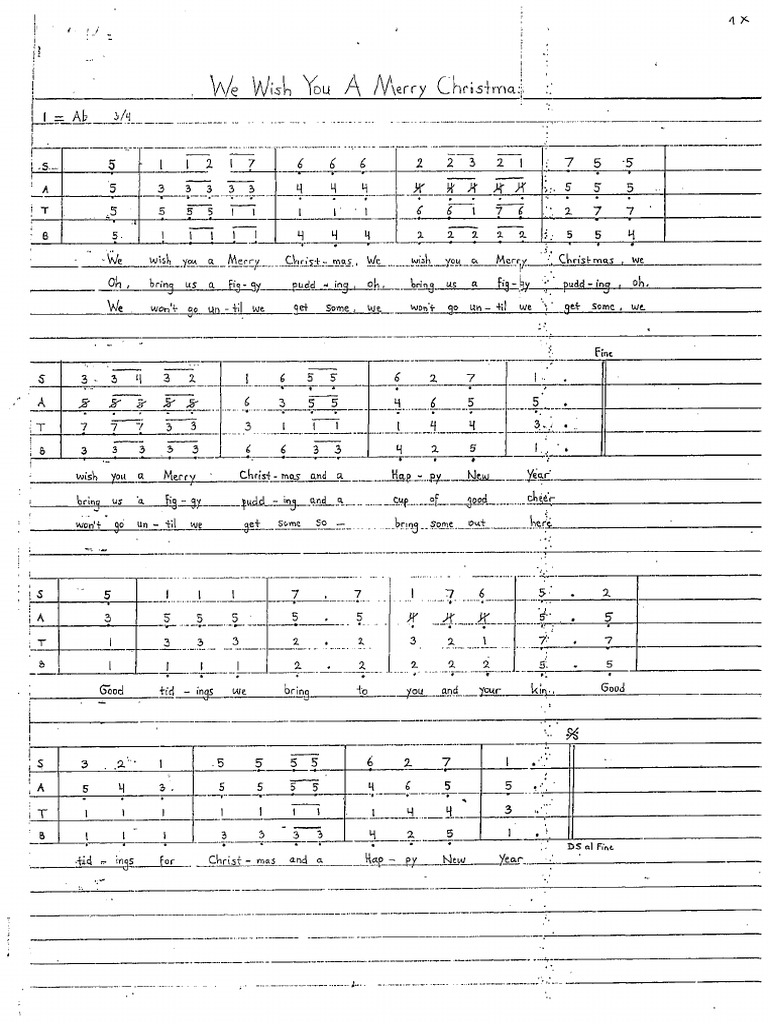 1 x
We Wish You A Merry Christma
1 = Ab 3/4
S 5 1 1 2 1 7 6 6 6 2 2 3 2 1 7 5 5
A 5 3 3 3 3 3 4 4 4 4 4 4 4 4 5 5 5
T 5 5 5 5 1 1 1 1 1 6 6 1 7 6 2 7 7
B 5 1 1 1 1 1 4 4 4 2 2 2 2 2 5 5 4
We wish you a Merry Christ-mas, We wish you a Merry Christmas, we
Oh, bring us a Fig-gy pudd-ing, oh, bring us a Fig-gy pudd-ing, oh.
We won't go un-til we get some, we won't go un-til we get some, we
Fine
S 3 3 4 3 2 1 6 5 5 6 2 7 1 .
A 5 5 5 5 5 6 3 5 5 4 6 5 5 .
T 7 7 7 3 3 3 1 1 1 1 4 4 3 .
B 3 3 3 3 3 6 6 3 3 4 2 5 1 .
wish you a Merry Christ-mas and a Hap-py New Year
bring us a Fig-gy pudd-ing and a cup of good cheer
won't go un-til we get some so - bring some out here
S 5 1 1 1 7 . 7 1 7 6 5 . 2
A 3 5 5 5 5 . 5 4 4 4 5 . 5
T 1 3 3 3 2 . 2 3 2 1 7 . 7
B 1 1 1 1 2 . 2 2 2 2 5 . 5
Good tid-ings we bring to you and your kin, Good
S 3 2 1 5 5 5 5 6 2 7 1 .
A 5 4 3 5 5 5 5 4 6 5 5 .
T 1 1 1 1 1 1 1 1 4 4 3 .
B 1 1 1 3 3 3 3 4 2 5 1 .
DS al Fine
tid-ings for Christ-mas and a Hap-py New Year